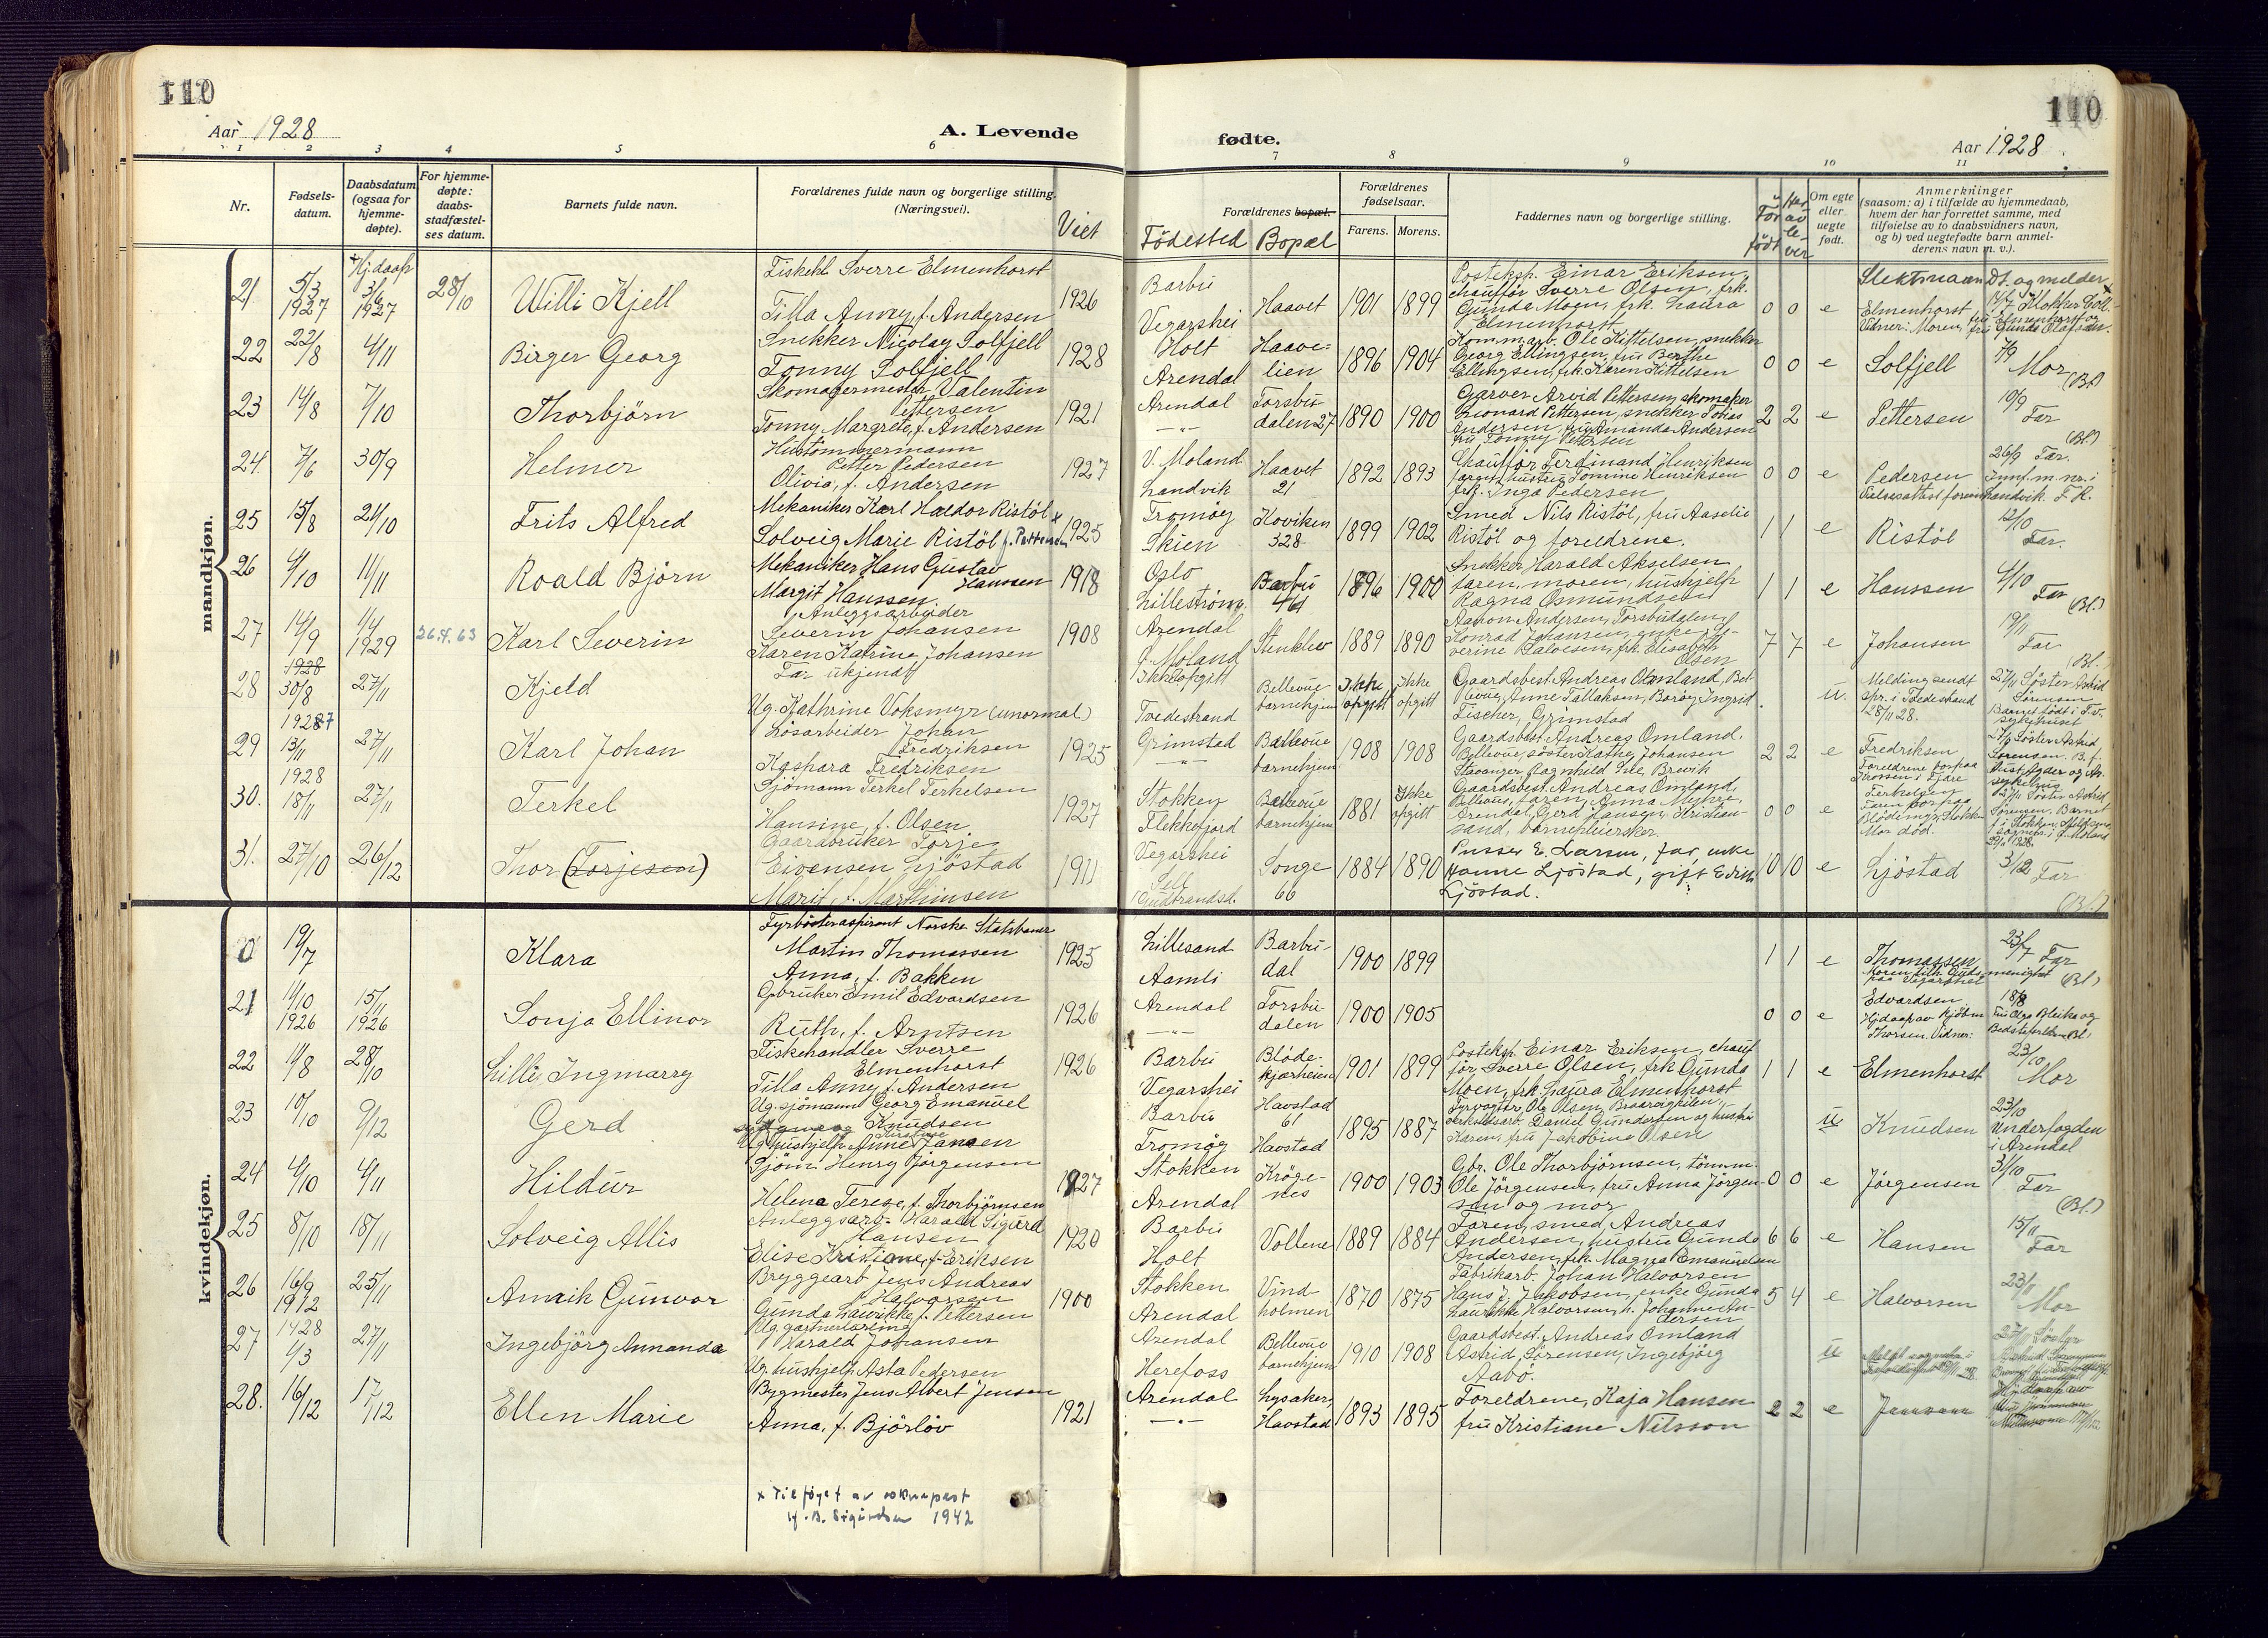 110
110
Aar 1928
A. Levende
fødte.
Aar 1928
1 2 3 4 5 6 7 8 9 10 11
Nr.
Fødselsdatum.
Daabsdatum (ogsaa for hjemmedøpte).
For hjemmedøpte: daabsstadfæstelses datum.
Barnets fulde navn.
Forældrenes fulde navn og borgerlige stilling. (Næringsvei).
Viet
Forældrenes bopæl.
Födested Bopæl
Forældrenes fødselsaar.
Farens. Morens.
Faddernes navn og borgerlige stilling.
Om egte eller uegte født.
Anmerkninger
(saasom: a) i tilfælde av hjemmedaab, hvem der har forrettet samme, med tilføielse av to daabsvidners navn, og b) ved uegtefødte barn anmelderens navn m. v.).
mandkjøn.
21 5/3 1927 Hjdaap 1927 28/10 Willi Kjell
Fiskehl. Sverre Elmenhorst
Tilla Anny, f. Andersen
1926 Barbu Vegarshei Haavet 1901 1899
Posteksp. Einar Eriksen, chaufför Sverre Olsen, frk. Gunda Moen, frk. Laura Elmenhorst
0 0 e Elmenhorst
22 22/8 4/11 Birger Georg
Snekker Nicolay Solfjell
Tonny Solfjell
1928 Holt Arendal Haavelien 1896 1904
Komm.arb. Ole Kittelsen, snekker Georg Ellingsen, fru Berthe Ellingsen, frk. Karen Kittelsen
0 0 e Solfjell 7/9 Mor (Bl.)
23 14/8 7/10 Thorbjörn
Skomagermester Valentin Pettersen
Tonny Margrete, f. Andersen
1921 Arendal Torsbudalen 27 1890 1900
Garver Arvid Pettersen, skomaker Leonard Pettersen, snekker Tobias Andersen, fru Amanda Andersen fru Tonny Pettersen
2 2 e Pettersen 10/9 Far (Bl.)
24. 7/6 30/9 Helmer
Hustömmermann Petter Pedersen
Olivia, f. Andersen
1927 V. Moland Landvik Haavet 21 1892 1893
Chaufför Ferdinand Henriksen og hustru Tomine Henriksen frk. Inga Pedersen
0 0 e Pedersen 26/9 Far.
25 15/8 21/10 Frits Alfred
Mekaniker Karl Haldor Ristöl x
Solveig Marie Ristöl f. Pettersen
1925 Tromøy Skien Koviken 328 1899 1902
Smed Nils Ristöl, fru Aaselie Ristöl og foreldrene.
1 1 e Ristöl 12/10 Far.
26 4/10 11/11 Roald Björn
Mekaniker Hans Gustav Hanssen
Margit Hanssen
1918 Oslo Lilleström. Barbu 461 1896 1900
Snekker Harald Akselsen, faren, moren, hushjelp Ragna Osmundsen
1 1 e Hanssen 4/10 Far (Bl.)
27 14/9 1/4 1929 26.4.63 Karl Severin
Anleggsarbeider Severin Johansen
Karen Katrine Johansen
1908 Arendal Ø. Moland Stenklev 1889 1890
Aanon Andersen, Torsbudalen, Konrad Johansen, enke Severine Halvorsen, frk. Elisabeth Olsen
7 7 e Johansen 19/11 Far (Bl.)
28 1928 30/8 27/11 Kjeld
Far ukjendt
Ug. Kathrine Voksmyr (unormal)
Ikke opgitt Tvedestrand Bellevue barnehjem Ikke opgitt Ikke opgitt
Gaardsbest. Andreas Omland, Bellevue, Anne Tallaksen, Barøy Ingrid Fischer, Grimstad
u. Melding sendt spr. i Tvedestrand 28/11 28. 27/11 Söster Astrid Sörensen Barnet födt i Tv. sykehuset
29 1927 13/11 27/11 Karl Johan
Lösarbeider Johan Fredriksen
Kaspara Fredriksen
1925 Grimstad Bellevue barnehjem 1908 1908
Gaardsbest. Andreas Omland, Bellevue, söster Kathe Johansen Stavanger Ragnhild Lie, Brevik
2 2 e Fredriksen
30. 1928 18/11 27/11 Terkel
Sjömann Terkel Terkelsen
Hansine, f. Olsen
1927 Stokken Flekkefjord Bellevue barnehjem 1881 Ikke opgitt
Gaardsbest. Andreas Omland, Bellevue, faren, Anna Myhre, Arendal, Gerd Jansen, Kristiansand, barnepleiersker.
0 0 e Terkelsen Mor död.
31. 27/10 26/12 Thor (Torjesen)
Gaardbruker Torje Eivensen Ljöstad
Marit, f. Marthinsen
1911 Vegarshei Sell Gudbrandsd. Songe 66 1884 1890
Pusser E. Larsen, far, enke Hanne Ljöstad, gift Edith Ljöstad.
10 10 e Ljöstad 3/12 Far (Bl.)
kvindekjøn.
0 19/7 Klara
Fyrböteraspirant Norske Statsbaner Martin Thomassen
Anna, f. Bakken
1925 Lillesand Aamli Barbudal 1900 1899
1 1 e Thomassen 23/7 Far (Bl.)
21 11/10 1926 15/11 1926 Sonja Ellinor
Gbruker Emil Edvardsen
Ruth, f. Arntsen
1926 Arendal Torsbudalen 1900 1905
0 0 e Edvardsen 18/8
22 11/8 28/10 Lilly Ingmarry
Fiskehandler Sverre Elmenhorst
Tilla Anny f. Andersen
1926 Barbu Vegarshei Blödekjærheien 1901 1899
Posteksp. Einar Eriksen, chauffør Sverre Olsen, frk Gunda Moen, frk. Laura Elmenhorst
1 1 e Elmenhorst 23/10 Mor
23 10/10 9/12 Gerd
Ug. sjömann Georg Emanuel Knudsen
Ug. hushjelp Anne Kirstine Jansen
Barbu Tromøy Havstad 61 Havstad 1895 1887
Fyrvogter Ole Olsen, Daniel Gundersen og hustru Karen, fru Jakobine Olsen
u Knudsen 23/10 Underfogden i Arendal
24 4/10 4/11 Hildur
Sjöm. Henry Jörgensen
Helena Terese, f. Thorbjörnsen
1927 Stokken Arendal Krögenes 1900 1903
Gbr. Ole Thorbjörnsen, tömm. Ole Jörgensen, fru Anna Jörgensen og mor
0 0 e Jörgensen 31/10 Far (Bl.)
25 8/10 18/11 Solveig Allis
Anleggsarb. Harald Sigurd Hansen
Elise Kristiane, f. Eriksen
1920 Barbu Holt Vollene 1889 1884
Faren, smed Andreas Andersen, hustru Gunda Andersen, frk. Magna Emanuelsen
6 6 e Hansen 15/11 Far
26 16/9 1912 25/11 Annik Gunvor
Bryggearb. Jens Andreas Halvorsen
Gunda Laurikke f. Pettersen
1900 Stokken Arendal Vindholmen 1870 1875
Fabrikarb. Johan Halvorsen Hans J. Jakobsen, enke Gunda Laurikke Halvorsen, h. Johanne Andersen
5 4 e Halvorsen 23/11 Mor
27 1928 4/3 27/11 Ingebjörg Annanda
Ug. gartnerlærling Harald Johansen
Ug. hushjelp Asta Pedersen
Arendal Herefoss Bellevue barnehjem 1910 1908
Gaardsbest. Andreas Omland Astrid Sörensen, Ingebjörg Aabö.
u
28. 16/12 17/12 Ellen Marie
Bygmester Jens Albert Jensen
Anna, f. Björlöv
1921 Arendal Lysaker, Havstad 1893 1895
Foreldrene, Kaja Hansen fru Kristiane Nilsson
2 2 e
x Tilföyet av sokneprest
1942